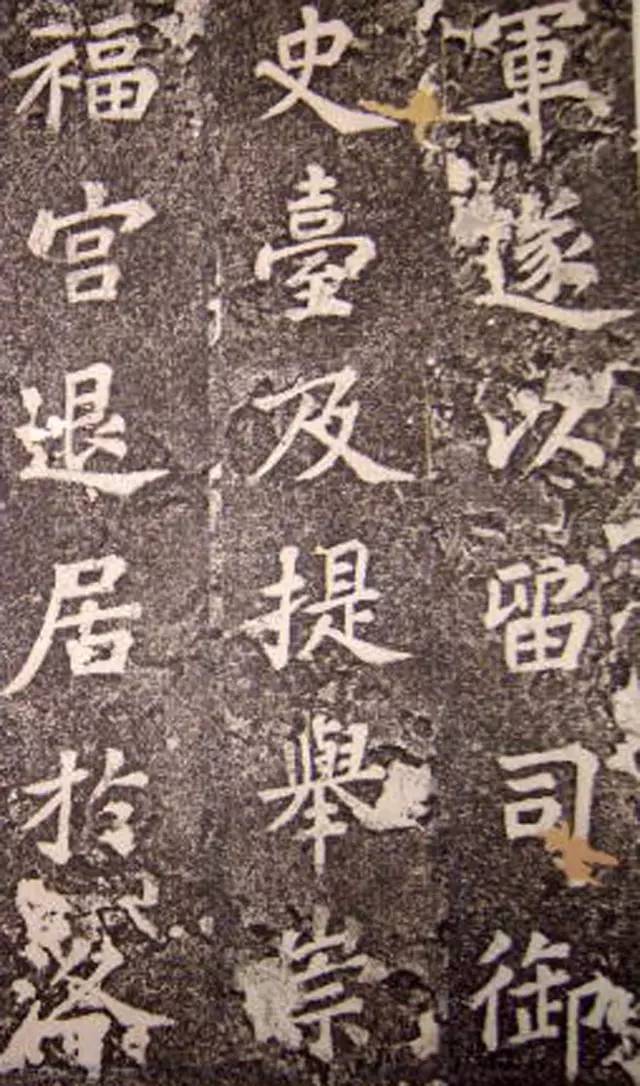 軍遂以留司御
史臺及提舉崇
福宮退居於洛